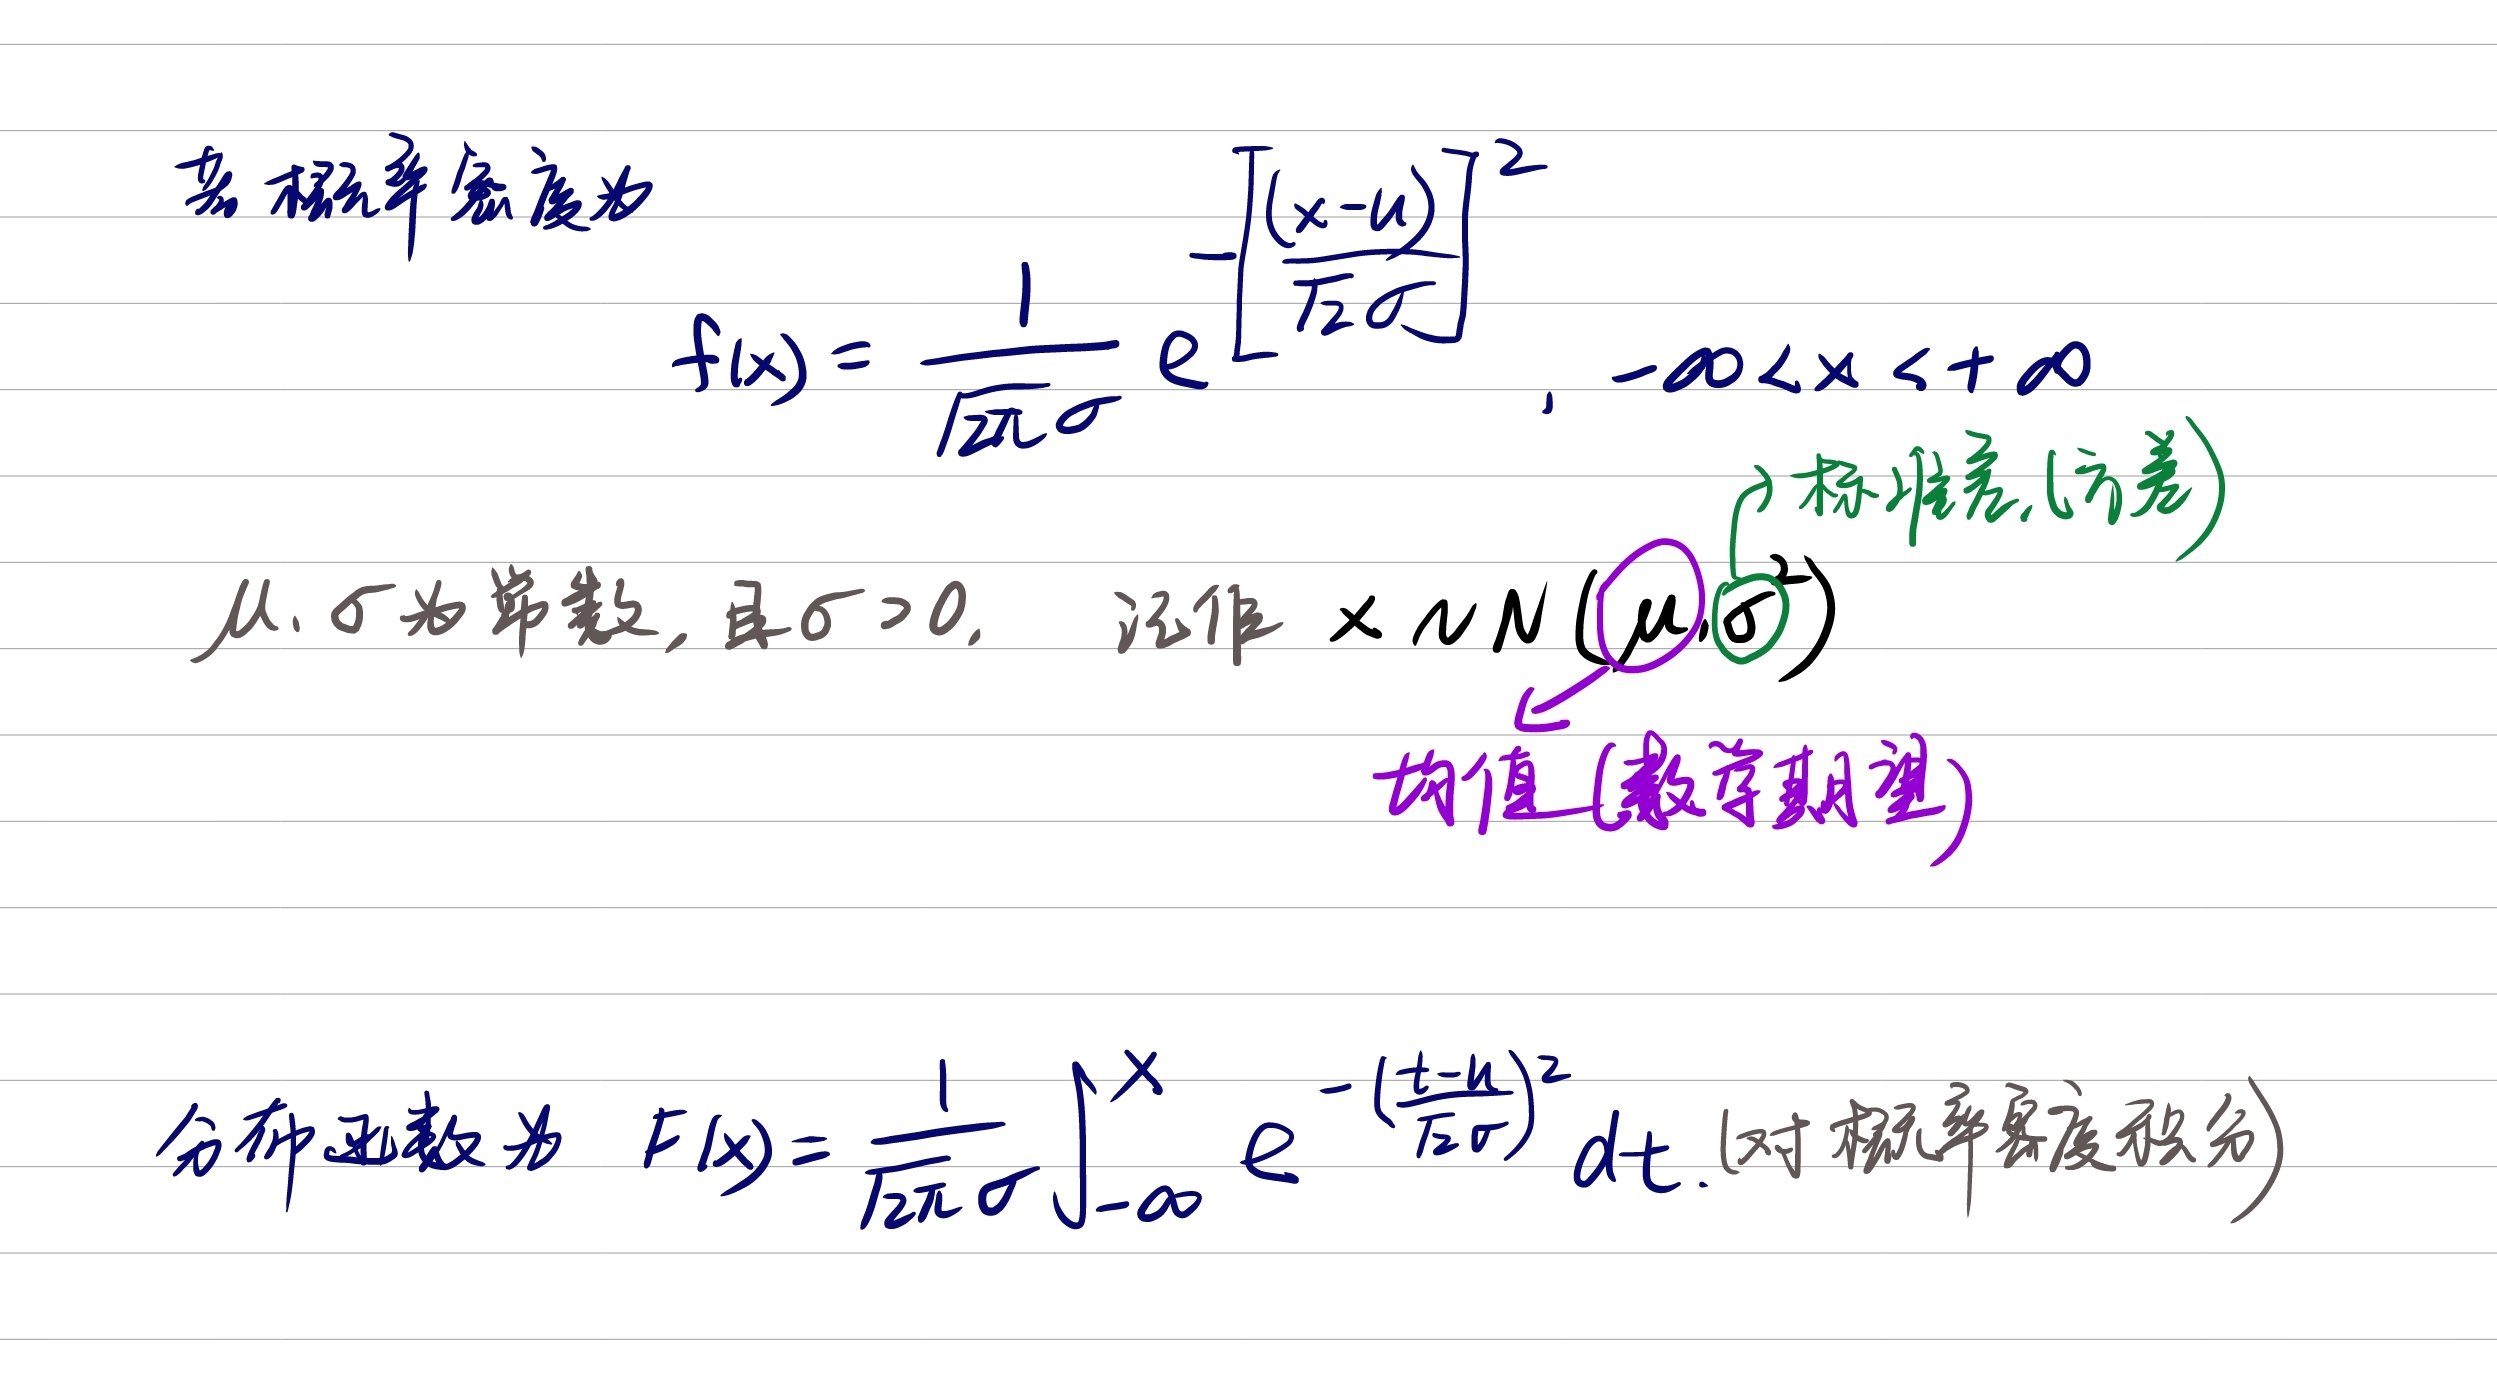 若概率密度为
f(x) = \frac{1}{\sqrt{2π}σ} e^{-[\frac{(x-μ)}{\sqrt{2}σ}]^2}, -∞ < x < +∞
标准差(方差)
μ、σ为常数, 且σ>0. 记作 x ~ N(μ, σ²)
均值(数学期望)
分布函数为 F(x) = \frac{1}{\sqrt{2π}σ} ∫_{-∞}^{x} e^{-(\frac{t-μ}{\sqrt{2}σ})^2} dt. (对概率密度积分)